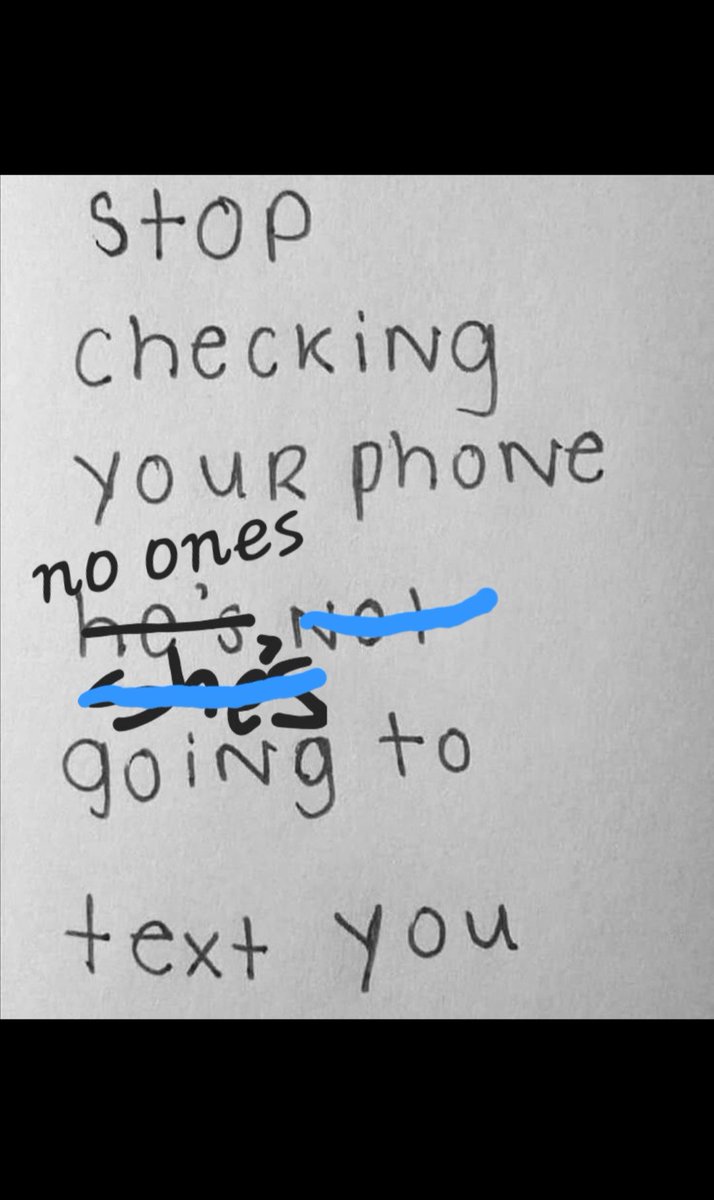 stop
checking
your phone
no ones
he's not
she's
going to
text you